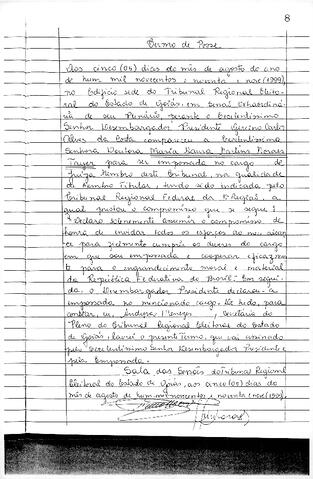 8
Termo de Posse
Aos cinco (05) dias do mês de agosto do ano
de hum mil novecentos e noventa e nove (1999),
no Edifício sede do Tribunal Regional Eleito-
ral do Estado de Goiás, em Sessão Extraordiná-
ria de seu Plenário, perante o Excelentíssimo
Senhor Desembargador Presidente Gercino Carlos
Alves da Costa, compareceu a Excelentíssima
Senhora Doutora Maria Maura Martins Moraes
Tayer para ser empossada no cargo de
Juíza Membro deste Tribunal, na qualidade
de Membro Titular, tendo sido indicada pelo
Tribunal Regional Federal da 1ª Região, a
qual prestou o compromisso que se segue:
"Declaro solenemente assumir o compromisso de
honra de envidar todos os esforços ao meu alcan-
ce para fielmente cumprir os deveres do cargo
em que sou empossada e cooperar eficazmen-
te para o engrandecimento moral e material
da República Federativa do Brasil". Em segui-
da, o Desembargador Presidente declarou-a
empossada no mencionado cargo. Do lido, para
constar, eu, Secretária do
Pleno do Tribunal Regional Eleitoral do Estado
de Goiás, lavrei o presente Termo, que vai assinado
pelo Excelentíssimo Senhor Desembargador Presidente e
pela Empossada.
Sala das Sessões do Tribunal Regional
Eleitoral do Estado de Goiás, aos cinco (05) dias do
mês de agosto de hum mil novecentos e noventa e nove (1999).